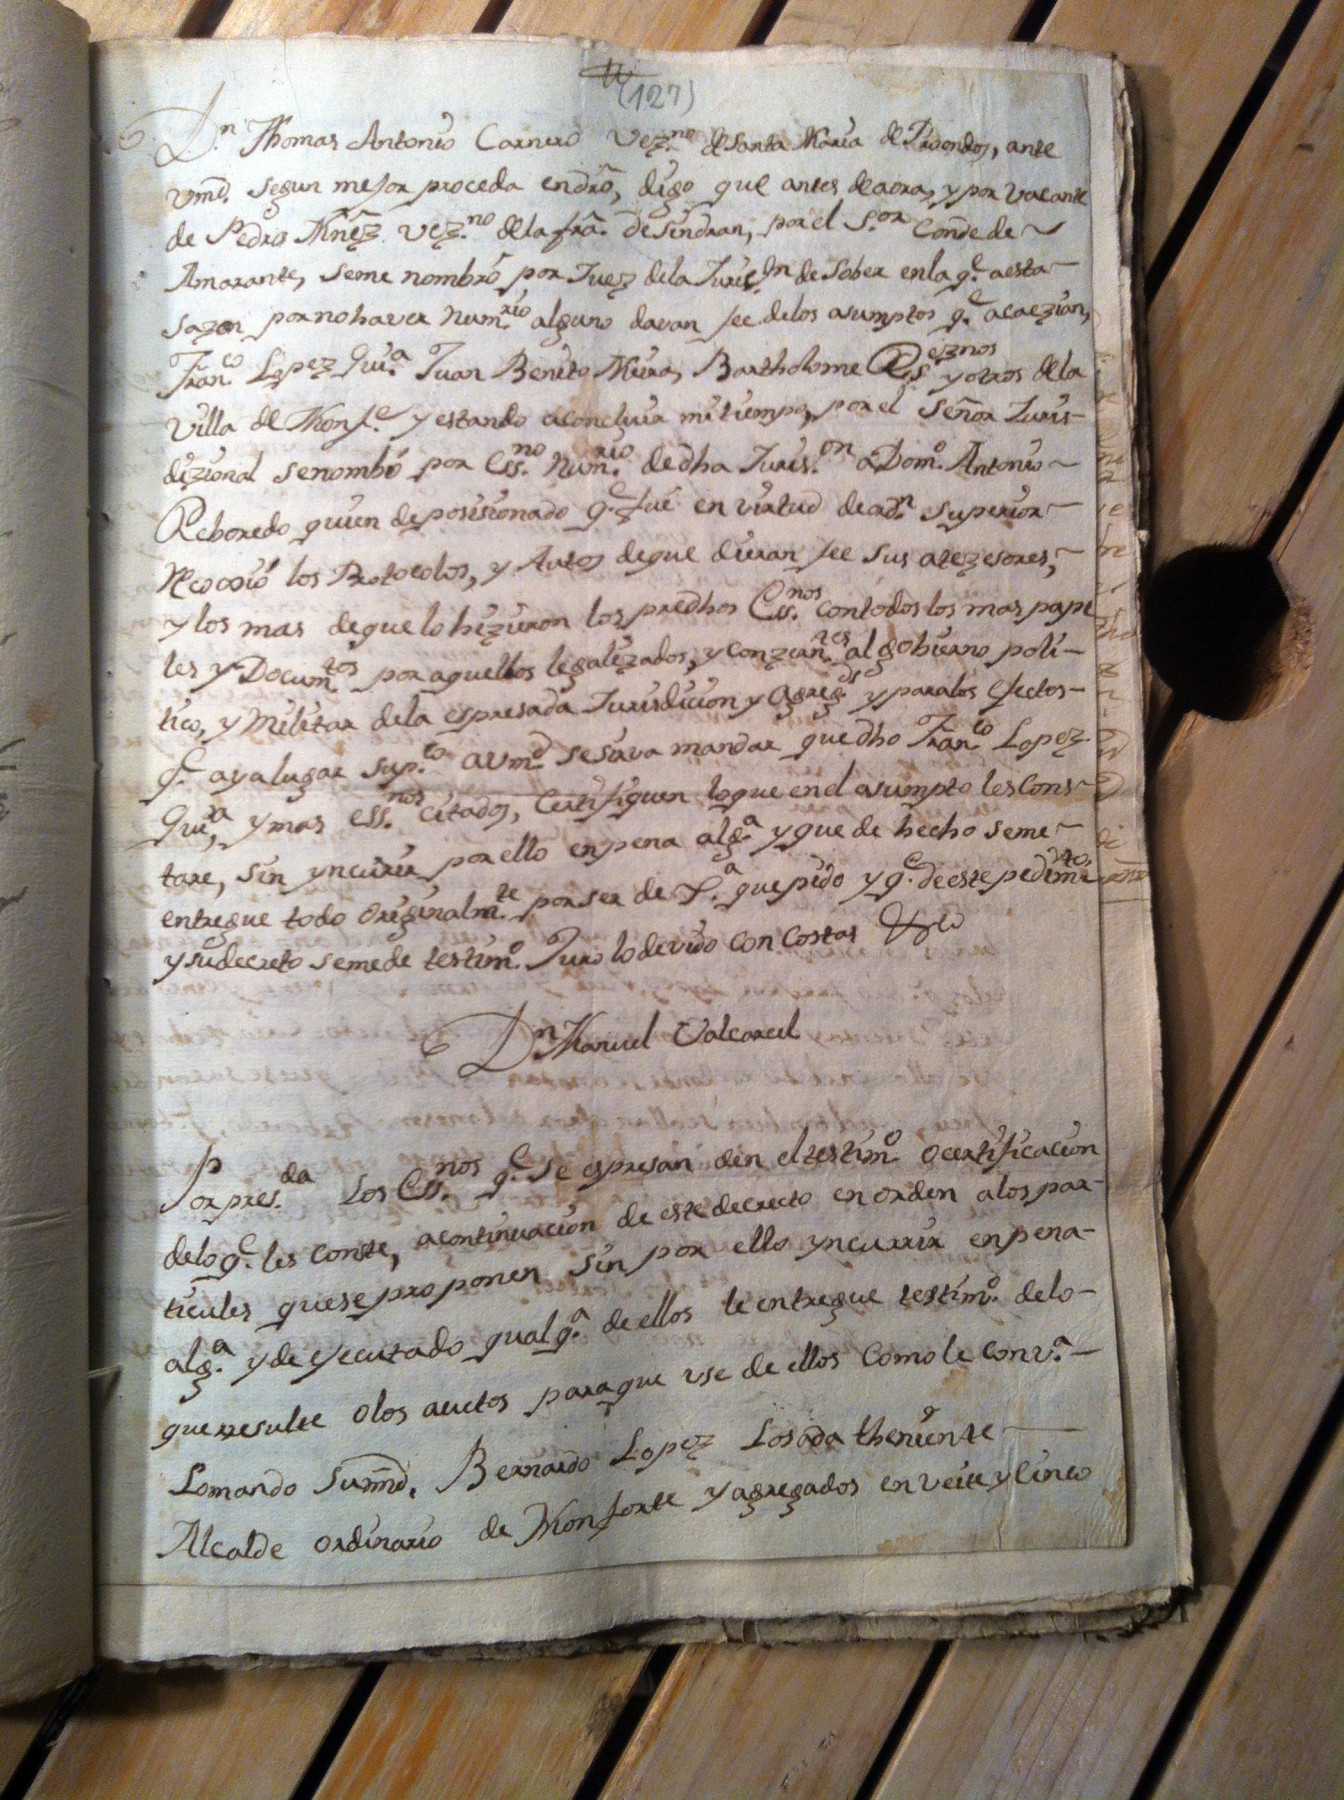 (127)
Dn. Thomas Antonio Carnero vez.no de Santa Maria de Proendos, ante
vmd. segun mejor proceda endro, digo que antes de aora, y por vacante
de Pedro Mñez vez.no de la fra. de Sindran, por el S.or Conde de
Amarante, seme nombró por Juez dela Juris.on de Sober en la q.e aesta
sazon por no haver Num.rio alguno davan fee delos asumptos q.e acaezian,
Fran.co Lopez Gui.a Juan Benito Meira, Bartholome R.s veznos y otros de la
villa de Monf.e y estando aconcluir mi tiempo, por el Señor Juris-
dizional senombó por Ess.no Num.rio de dha Juris.on a Dom.o Antonio
Reboredo quien deposisionado q.e fué en virtud de ordn. superior
Recoxió los Protocolos, y Autos deque dieran fee sus atezesores,
y los mas deque lo hizieron los predhos Ess.nos contodos los mas pape
les y Docum.tos por aquellos legalizados, y conzern.tes al gobierno poli-
tico, y Militar dela espresada Jurisdicion y Agreg.dos y para los efectos
q.e aya lugar sup.co a vm.d se sirva mandar que dho Fran.co Lopez
Gui.a, y mas ess.nos citados, Certifiquen loque en el asumpto les cons-
tare, sin yncurrir por ello en pena alg.a y que de hecho seme
entregue todo originalm.te por ser de J.a que pido y q.e de este pedim.to
y su decreto seme de testim.o Juro lo devido con costas
Dn. Manuel Valcarcel
Por pres.da Los Ess.nos q.e se espresan den el testim.o o certificacion
delo q.e les conste, acontinuacion de este decreto en orden alos par-
ticules que se proponen sin por ello yncurrir en pena
alg.a y de ejecutado qualq.a de ellos le entregue testim.o delo
que resulte o los auctos para que use de ellos como le conv.a
Lo mando sumd. Bernardo Lopez Losada theniente
Alcalde ordinario de Monforte y agregados en veite y cinco